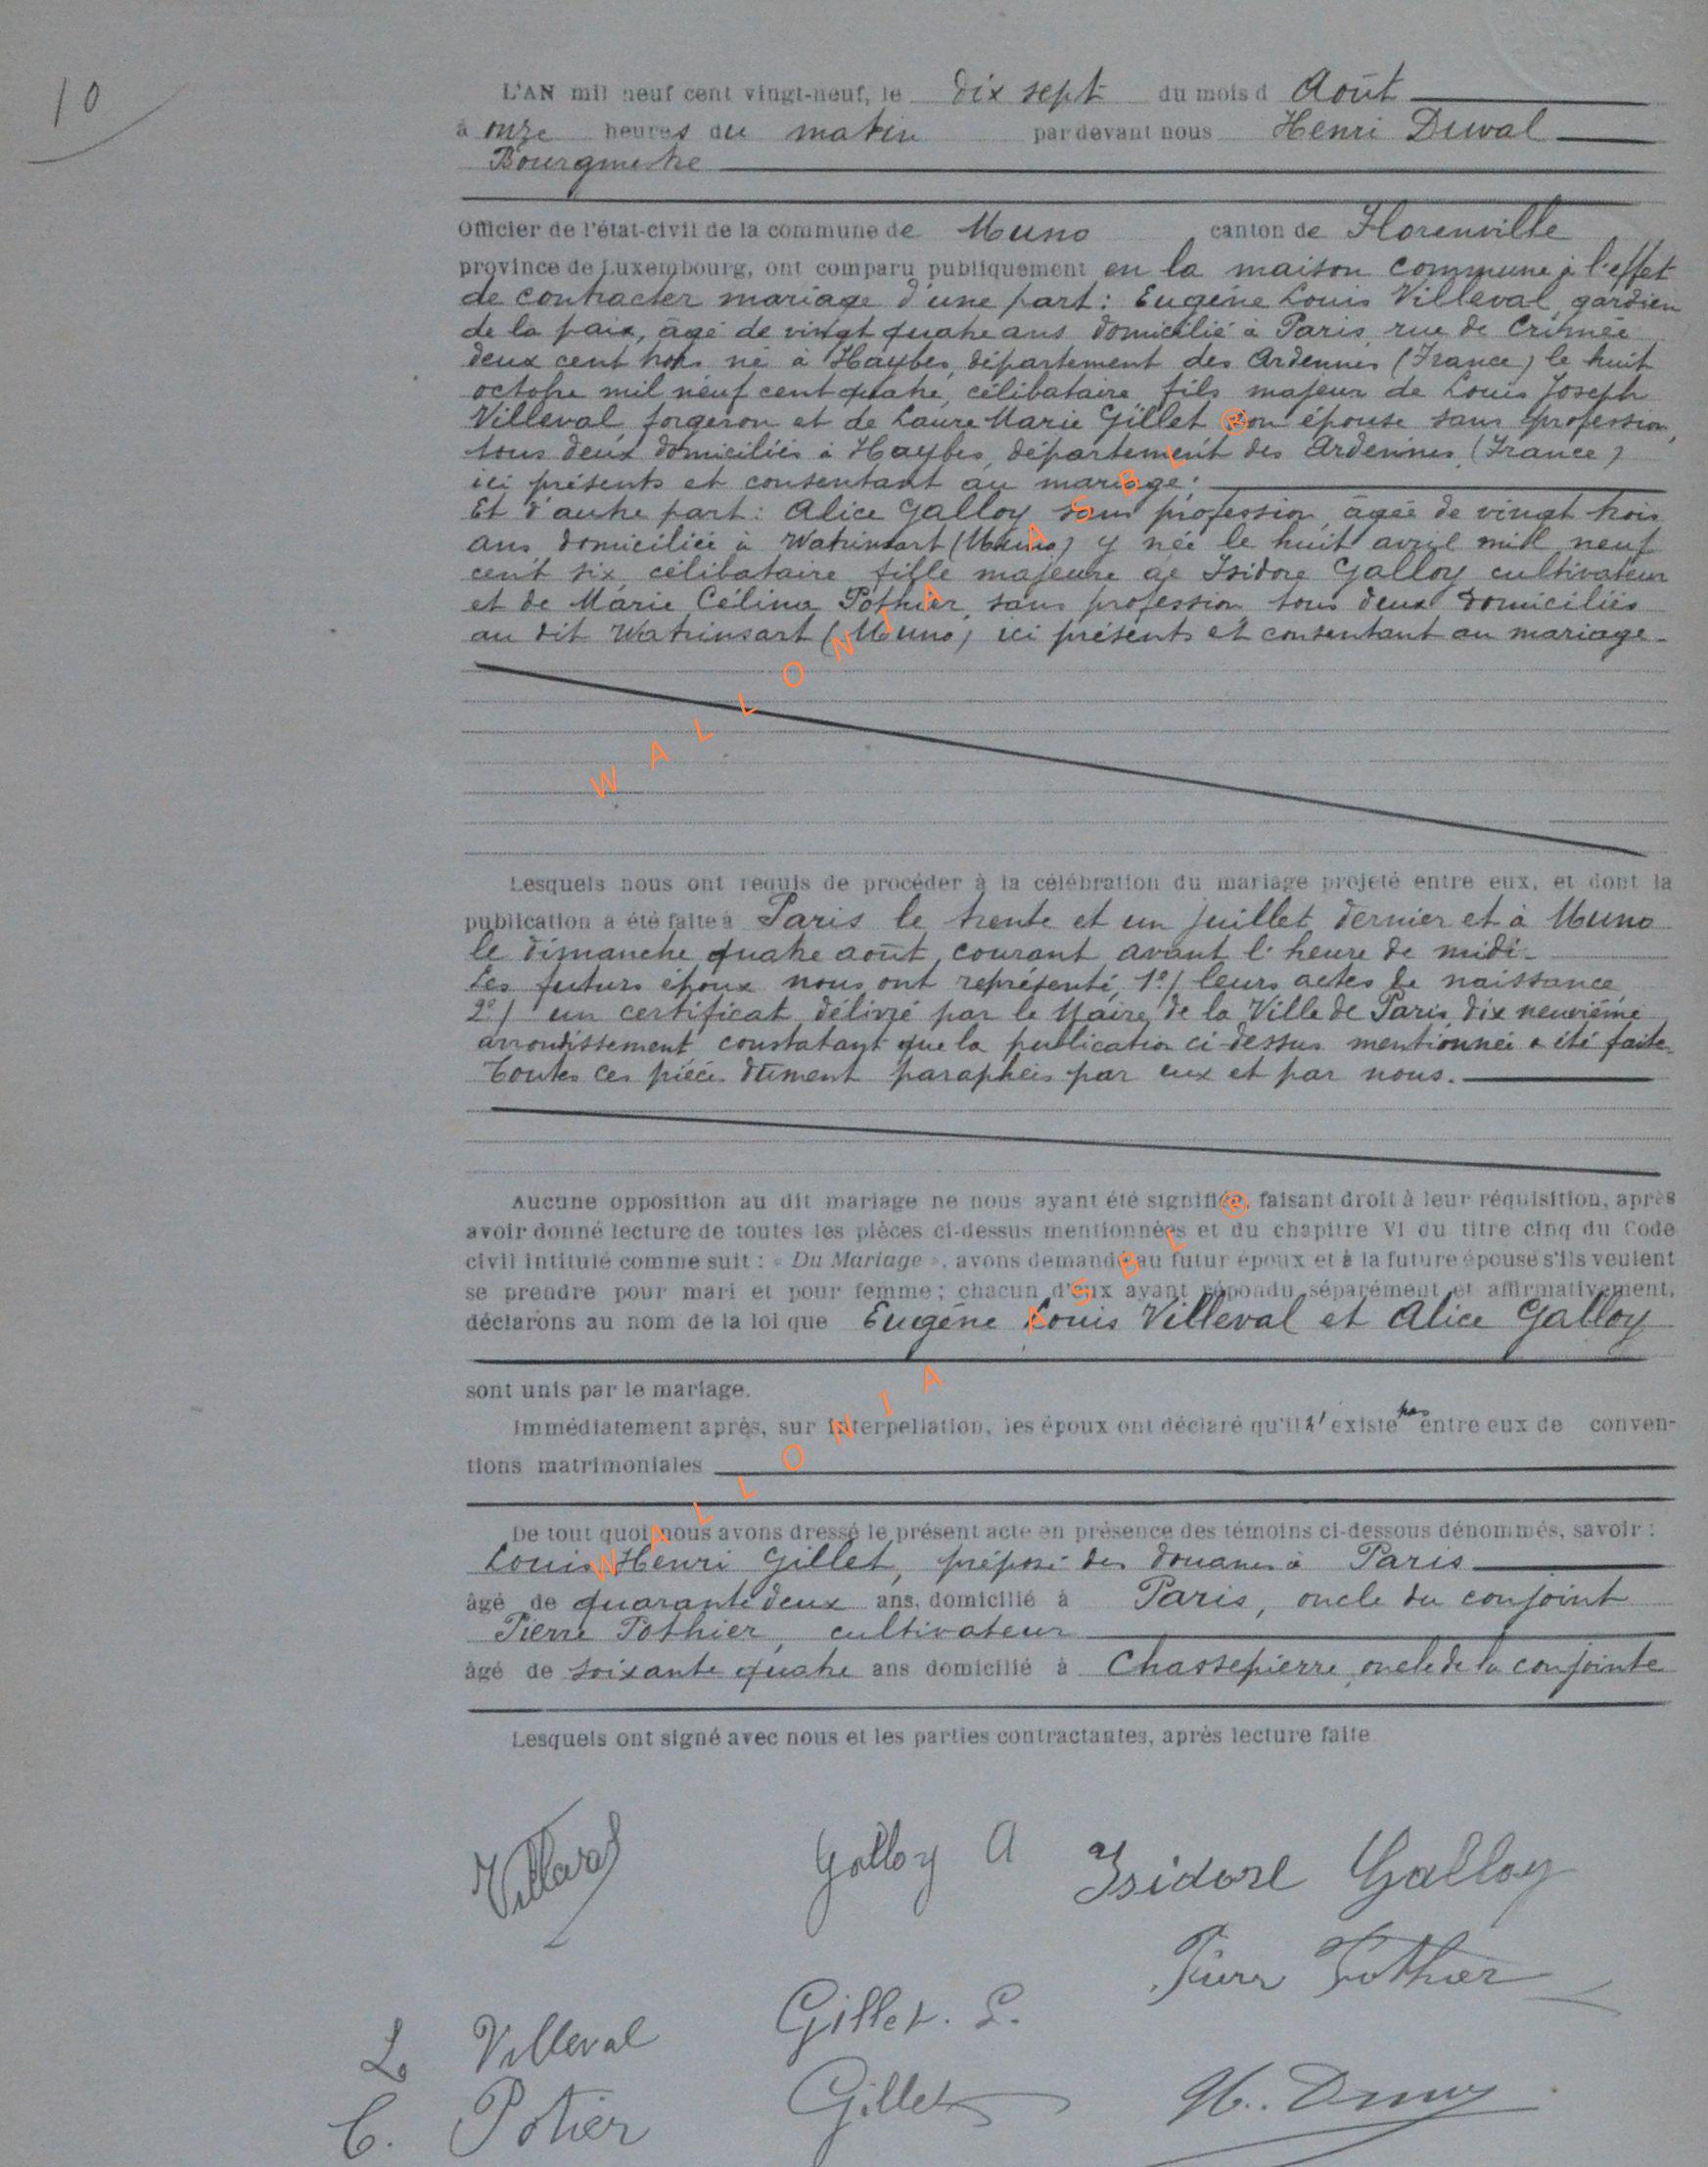 10
L'AN mil neuf cent vingt-neuf, le dix sept du mois d Août
à onze heures du matin par devant nous Henri Duval
Bourgmestre
Officier de l'état-civil de la commune de Muno canton de Florenville
province de Luxembourg, ont comparu publiquement en la maison commune à l'effet
de contracter mariage d'une part: Eugène Louis Villeval, gardien
de la paix, âgé de vingt quatre ans domicilié à Paris, rue de Crimée
deux cent trois né à Haybes, département des Ardennes (France) le huit
octobre mil neuf cent quatre, célibataire, fils majeur de Louis Joseph
Villeval, forgeron et de Laure Marie Gillet son épouse sans profession,
tous deux domiciliés à Haybes, département des Ardennes (France)
ici présents et consentant au mariage;
Et d'autre part: Alice Galloy sans profession, âgée de vingt trois
ans domiciliée à Watrinsart (Muno) y née le huit avril mil neuf
cent six, célibataire fille majeure de Isidore Galloy cultivateur
et de Marie Célina Pothier, sans profession tous deux domiciliés
au dit Watrinsart (Muno) ici présents et consentant au mariage
WALLONIA ASBL ®
Lesquels nous ont requis de procéder à la célébration du mariage projeté entre eux, et dont la
publication a été faite à Paris le trente et un juillet dernier et à Muno
le dimanche quatre août, courant avant l'heure de midi
Les futurs époux nous ont représenté, 1°/ leurs actes de naissance
2°/ un certificat délivré par le Maire de la Ville de Paris, dix neuvième
arrondissement constatant que la publication ci-dessus mentionnée a été faite.
Toutes ces pièces dûment paraphées par eux et par nous.
Aucune opposition au dit mariage ne nous ayant été signifiée, faisant droit à leur réquisition, après
avoir donné lecture de toutes les pièces ci-dessus mentionnées et du chapitre VI du titre cinq du Code
civil intitulé comme suit : « Du Mariage », avons demandé au futur époux et à la future épouse s'ils veulent
se prendre pour mari et pour femme ; chacun d'eux ayant répondu séparément et affirmativement,
déclarons au nom de la loi que Eugène Louis Villeval et Alice Galloy
sont unis par le mariage.
Immédiatement après, sur interpellation, les époux ont déclaré qu'il n'existe pas entre eux de conven-
tions matrimoniales
WALLONIA ASBL ®
De tout quoi nous avons dressé le présent acte en présence des témoins ci-dessous dénommés, savoir :
Louis Henri Gillet, préposé des douanes à Paris
âgé de quarante deux ans, domicilié à Paris, oncle du conjoint
Pierre Pothier, cultivateur
âgé de soixante quatre ans domicilié à Chassepierre, oncle de la conjointe
Lesquels ont signé avec nous et les parties contractantes, après lecture faite
Villeval Galloy A Isidore Galloy
Pierre Pothier
L. Villeval Gillet. L.
C. Potier Gillet H. Duval